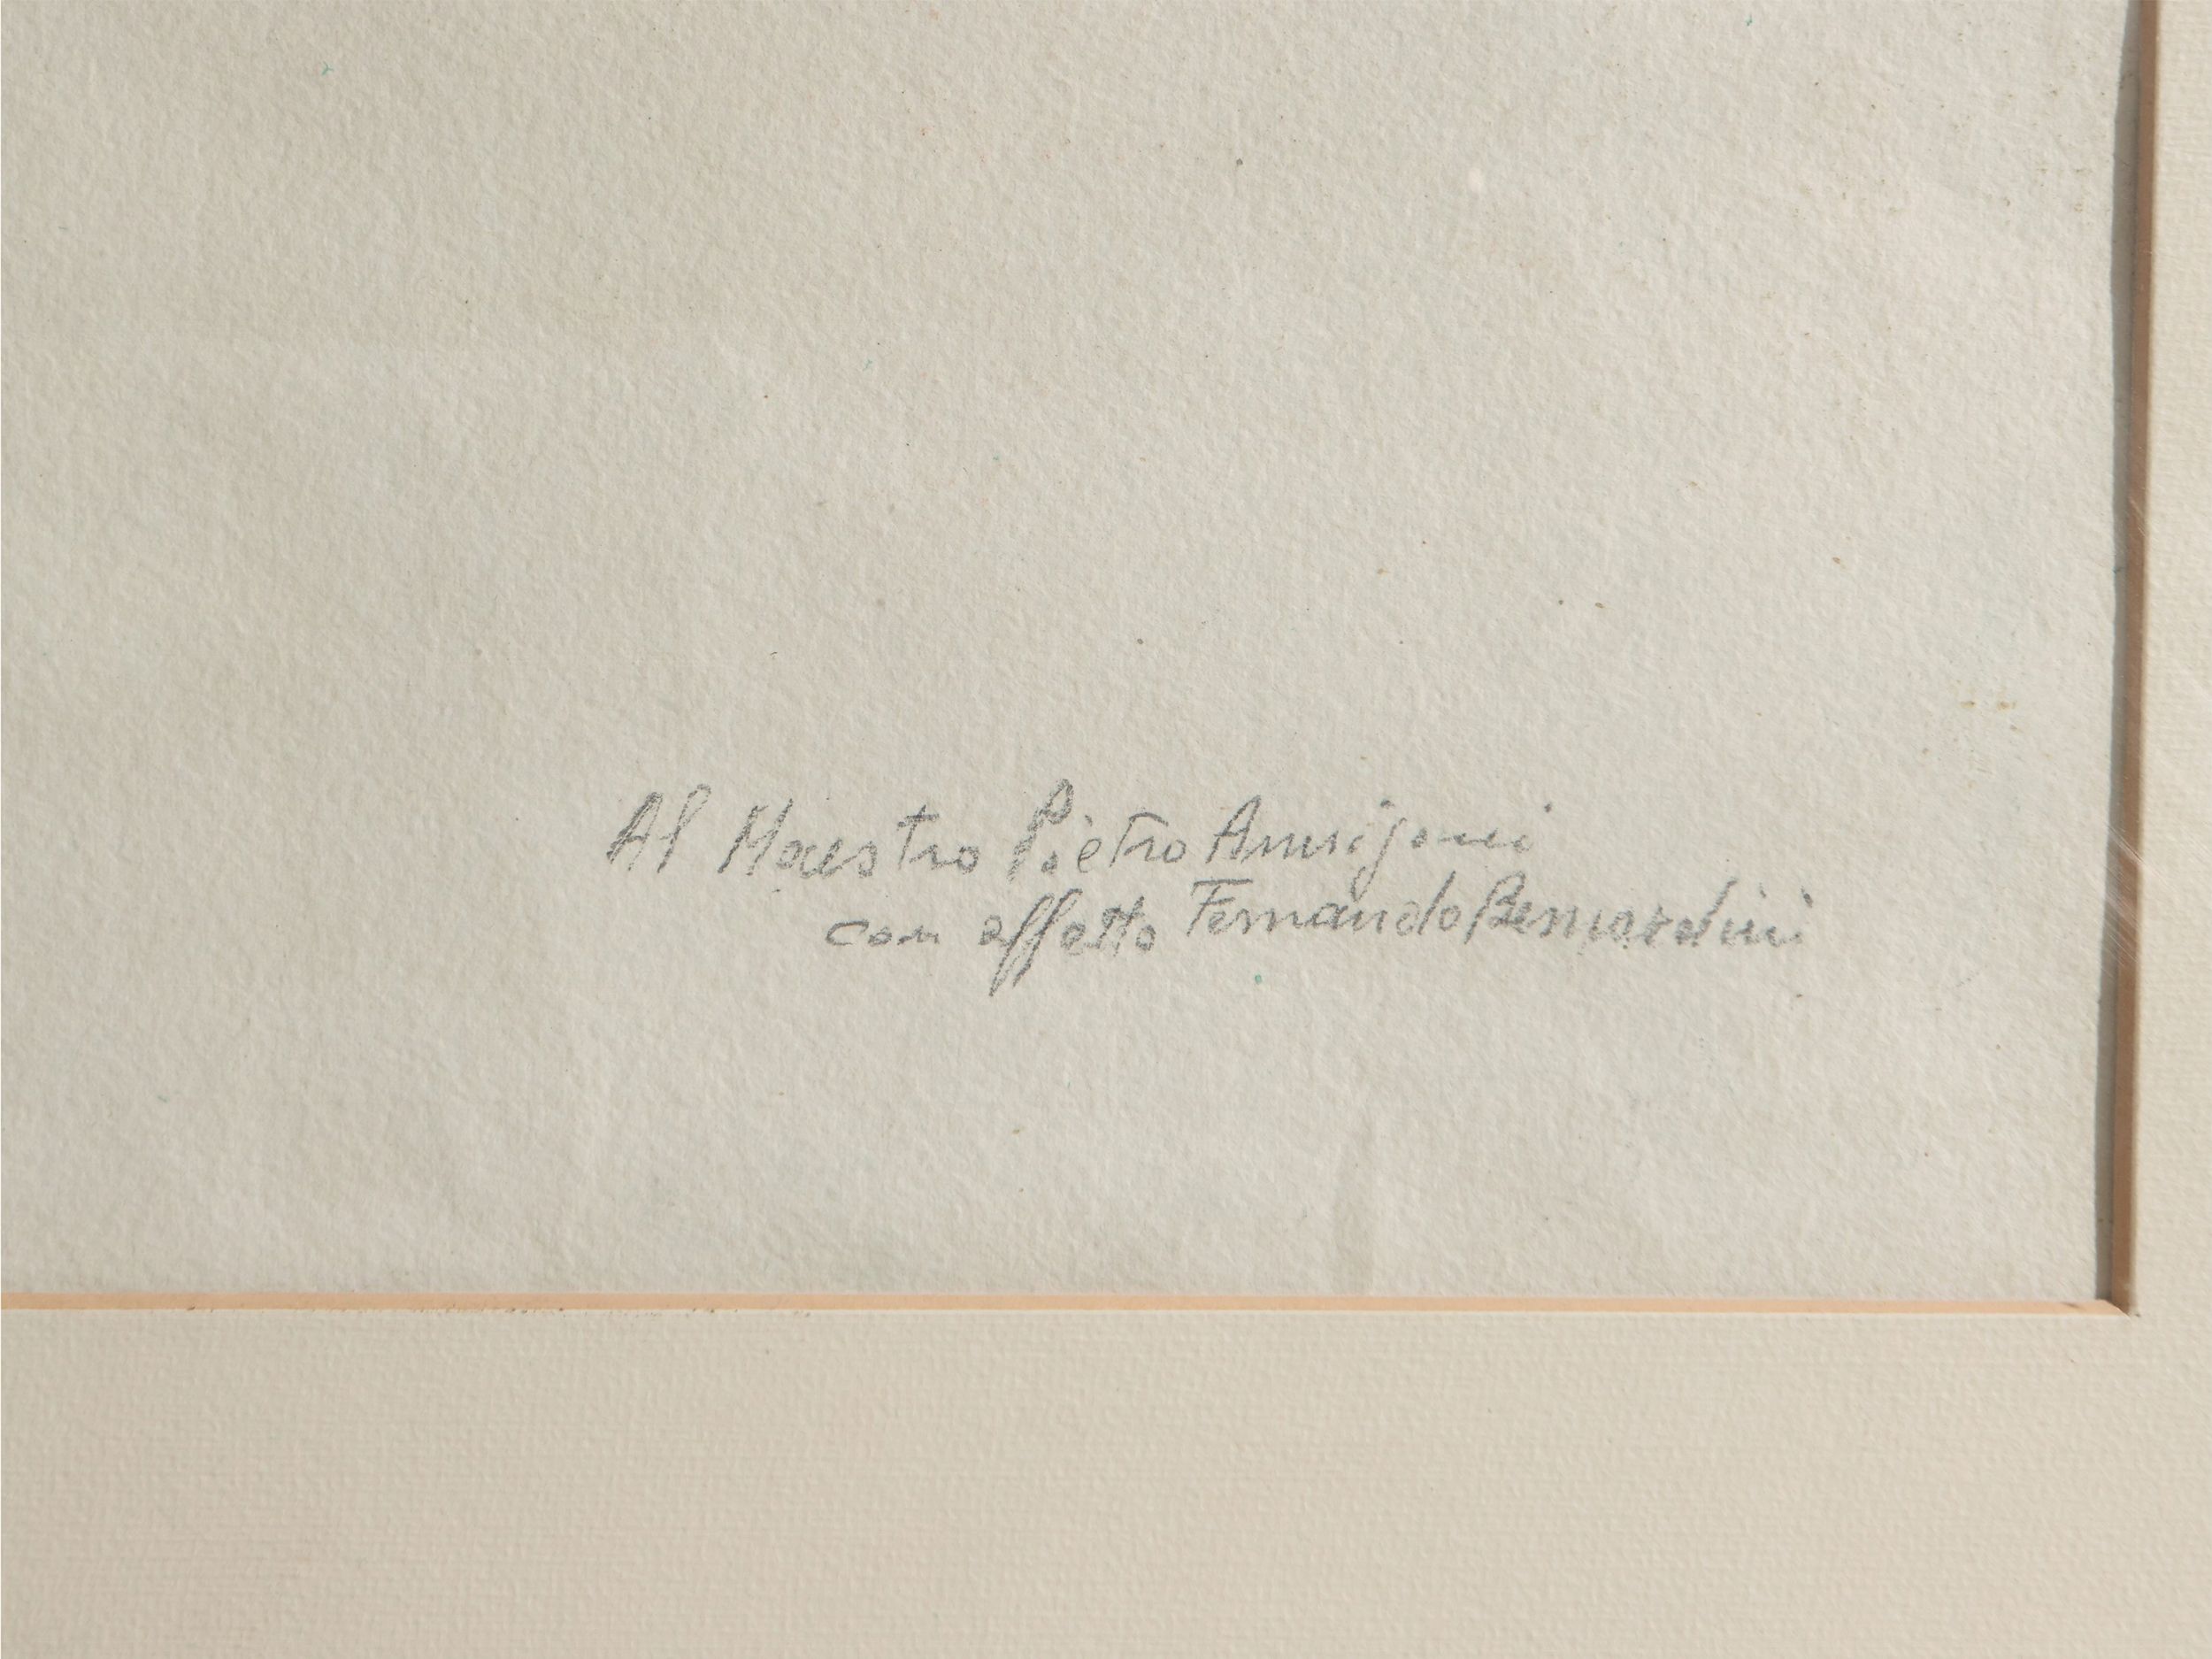 Al Maestro Pietro Annigoni
con affetto Fernando Bernardini